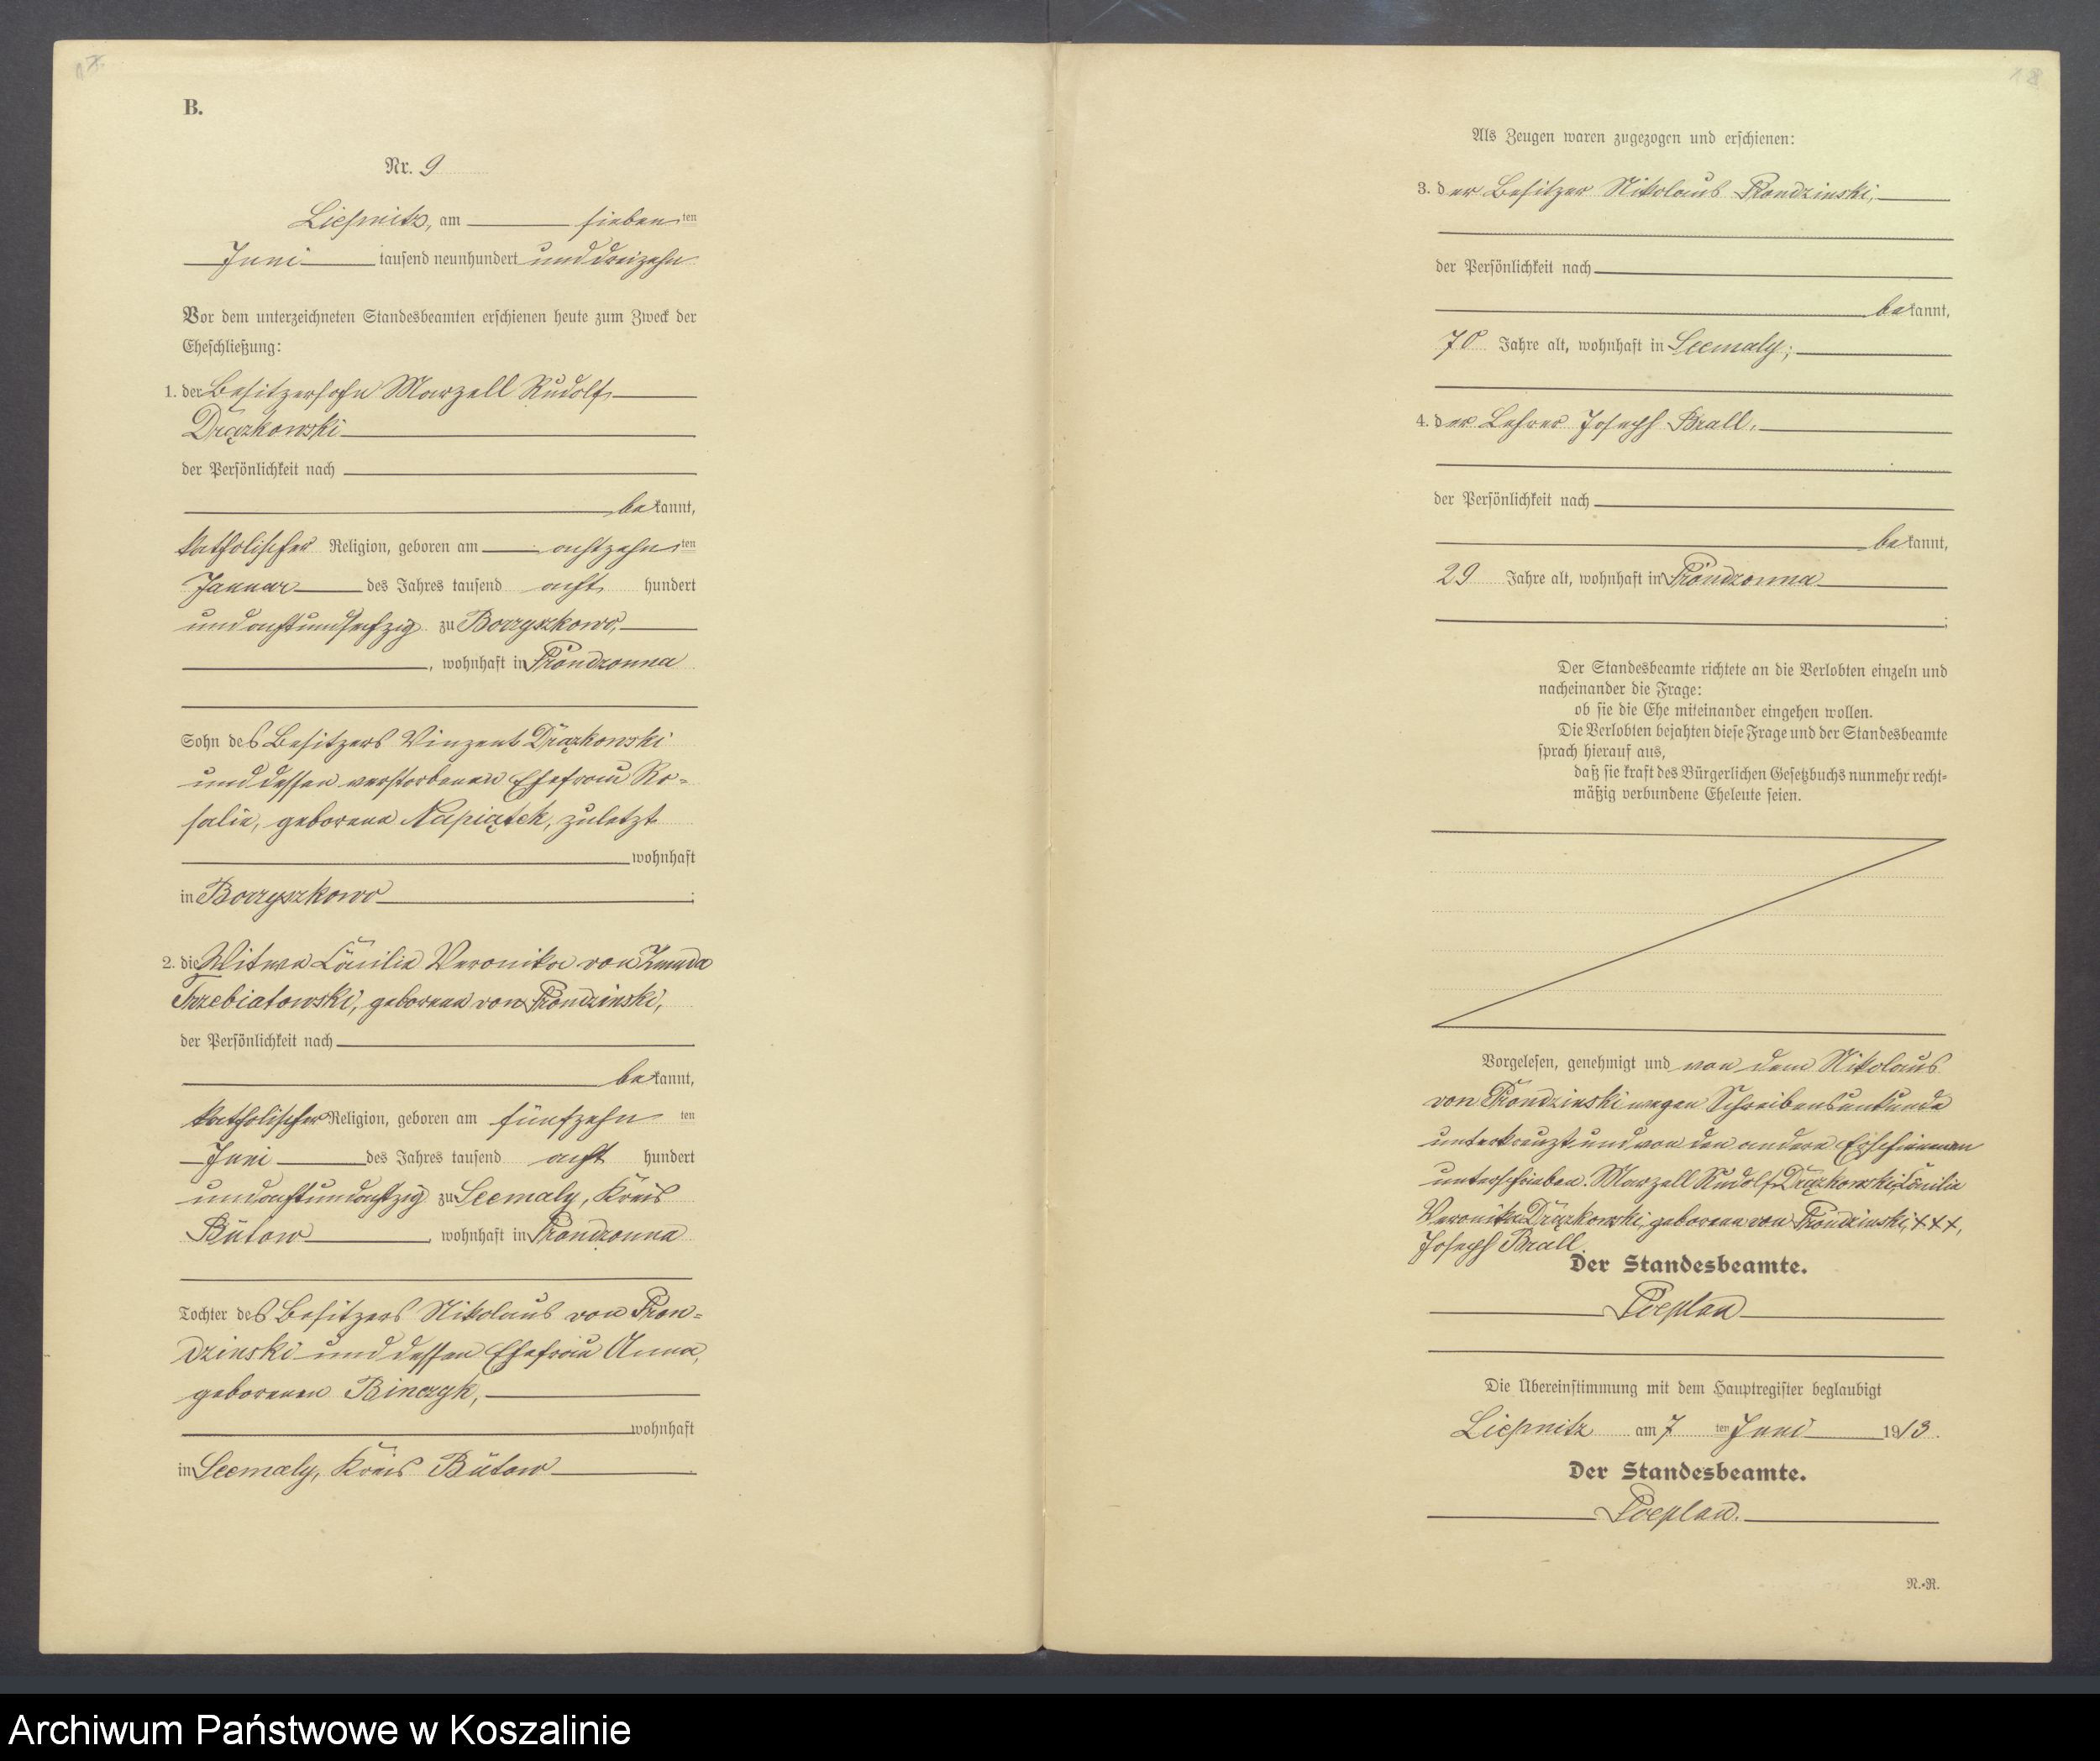 B.
Nr. 9
Liepnitz, am sieben ten
Juni tausend neunhundert und dreizehn
Vor dem unterzeichneten Standesbeamten erschienen heute zum Zweck der
Eheschließung:
1. der Besitzersohn Marzell Rudolf
Drązkowski
der Persönlichkeit nach
be kannt,
katholischer Religion, geboren am achtzehn ten
Januar des Jahres tausend acht hundert
undachtundsechzig zu Borzyszkowo,
, wohnhaft in Prondzonna
Sohn des Besitzers Vinzent Drązkowski
und dessen verstorbenen Ehefrau Ro=
salie, geborene Napiątek, zuletzt
wohnhaft
in Borzyszkowo ;
2. die Witwe Cäcilie Veronika von Zmuda
Trzebiatowski, geborene von Prondzinski,
der Persönlichkeit nach
be kannt,
katholischer Religion, geboren am fünfzehn ten
Juni des Jahres tausend acht hundert
undachtundachtzig zu Seemaly, Kreis
Bütow , wohnhaft in Prondzonna
Tochter des Besitzers Nikolaus von Pron=
dzinski und dessen Ehefrau Anna,
geborenen Binczyk,
wohnhaft
in Seemaly, Kreis Bütow .
Als Zeugen waren zugezogen und erschienen:
3. der Besitzer Nikolaus Prondzinski,
der Persönlichkeit nach
be kannt,
70 Jahre alt, wohnhaft in Seemaly;
4. der Lehrer Joseph Brall,
der Persönlichkeit nach
be kannt,
29 Jahre alt, wohnhaft in Prondzonna
.
Der Standesbeamte richtete an die Verlobten einzeln und
nacheinander die Frage:
ob sie die Ehe miteinander eingehen wollen.
Die Verlobten bejahten diese Frage und der Standesbeamte
sprach hierauf aus,
daß sie kraft des Bürgerlichen Gesetzbuchs nunmehr recht=
mäßig verbundene Eheleute seien.
Vorgelesen, genehmigt und von dem Nikolaus
von Prondzinski wegen Schreibensunkunde
unterkreuzt und von den andern Erschienenen
unterschrieben. Marzell Rudolf Drązkowski, Cäcilie
Veronika Drązkowski, geborene von Prondzinski, +++,
Joseph Brall.
Der Standesbeamte.
Poeplau
Die Übereinstimmung mit dem Hauptregister beglaubigt
Liepnitz am 7 ten Juni 1913.
Der Standesbeamte.
Poeplau.
N.-R.
Archiwum Państwowe w Koszalinie